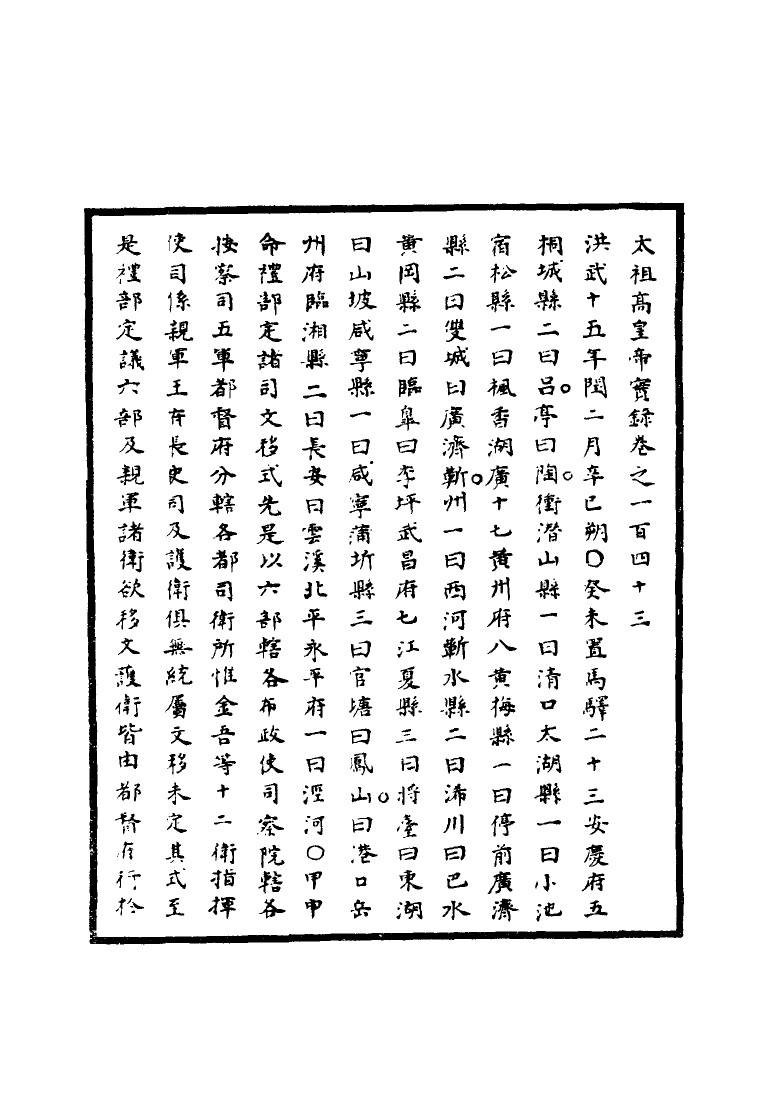 太祖髙皇帝實録巻之一百四十三
洪武十五年閏二月辛巳朔○癸未置馬驛二十三安慶府五
桐城縣二曰吕亭曰陶衝潜山縣一曰清口太湖縣一曰小池
宿松縣一曰楓香湖廣十七黄州府八黄梅縣一曰停前廣濟
縣二曰雙城曰廣濟蘄州一曰西河蘄水縣二曰浠川曰巴水
黄岡縣二曰臨臯曰李坪武昌府七江夏縣三曰将臺曰東湖
曰山坡咸寧縣一曰咸寧蒲圻縣三曰官塘曰鳳山曰港口岳
州府臨湘縣二曰長安曰雲溪北平永平府一曰涇河○甲申
命禮部定諸司文移式先是以六部轄各布政使司察院轄各
按察司五軍都督府分轄各都司衛所惟金吾等十二衛指揮
使司係親軍王府長史司及護衛俱無統屬文移未定其式至
是禮部定議六部及親軍諸衛欲移文護衛皆由都督府行於